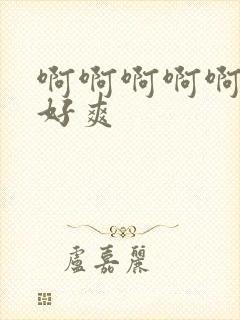 啊啊啊啊啊
好爽
盧嘉麗